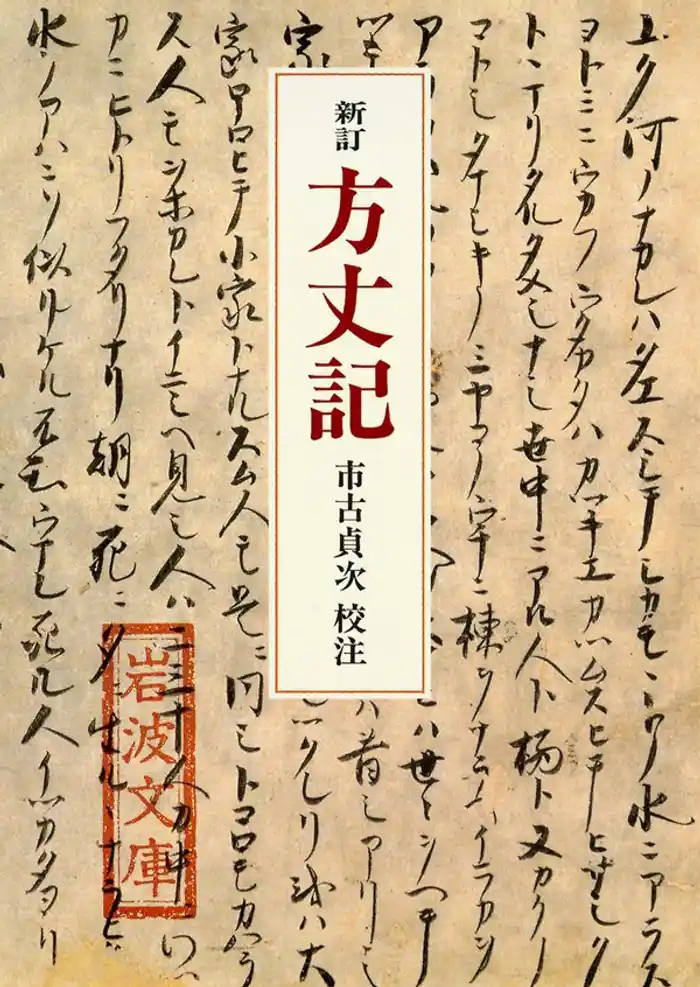 新訂
方丈記
市古貞次 校注
岩波文庫
ユク河ノナカレハタエスシテシカモヽトノ水ニアラス
ヨトミニウカフウタカタハカツキエカツムスヒテヒサシク
トヽマリタルタメシナシ世中ニアル人ト栖ト又カクノ
コトシタマシキノミヤコノウチニ棟ヲナラヘイラカヲ
ハ世々ヲヘテ
ハ昔シアリシ
家 或ハ大
家ホロヒテ小家トナルスム人モ是ニ同シトコロモカハラ
ス人モヲホカレトイニシヘ見シ人ハ二三十人カ中ニワツ
カニヒトリフタリナリ朝ニ死ニ夕ニ生ルヽナラヒ
水ノアハニソ似リケル不知ウマレ死ル人イツカタヨリ